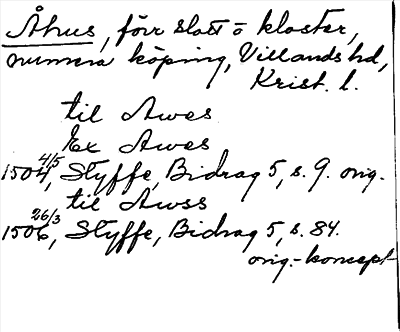 Åhus, förr slott o kloster,
numera köping, Villands hd,
Krist. l.
til Awes
Ex Awes
1504 4/5, Styffe, Bidrag 5, s. 9. orig.
til Awss
1506 26/3, Styffe, Bidrag 5, s. 84.
orig.-koncept